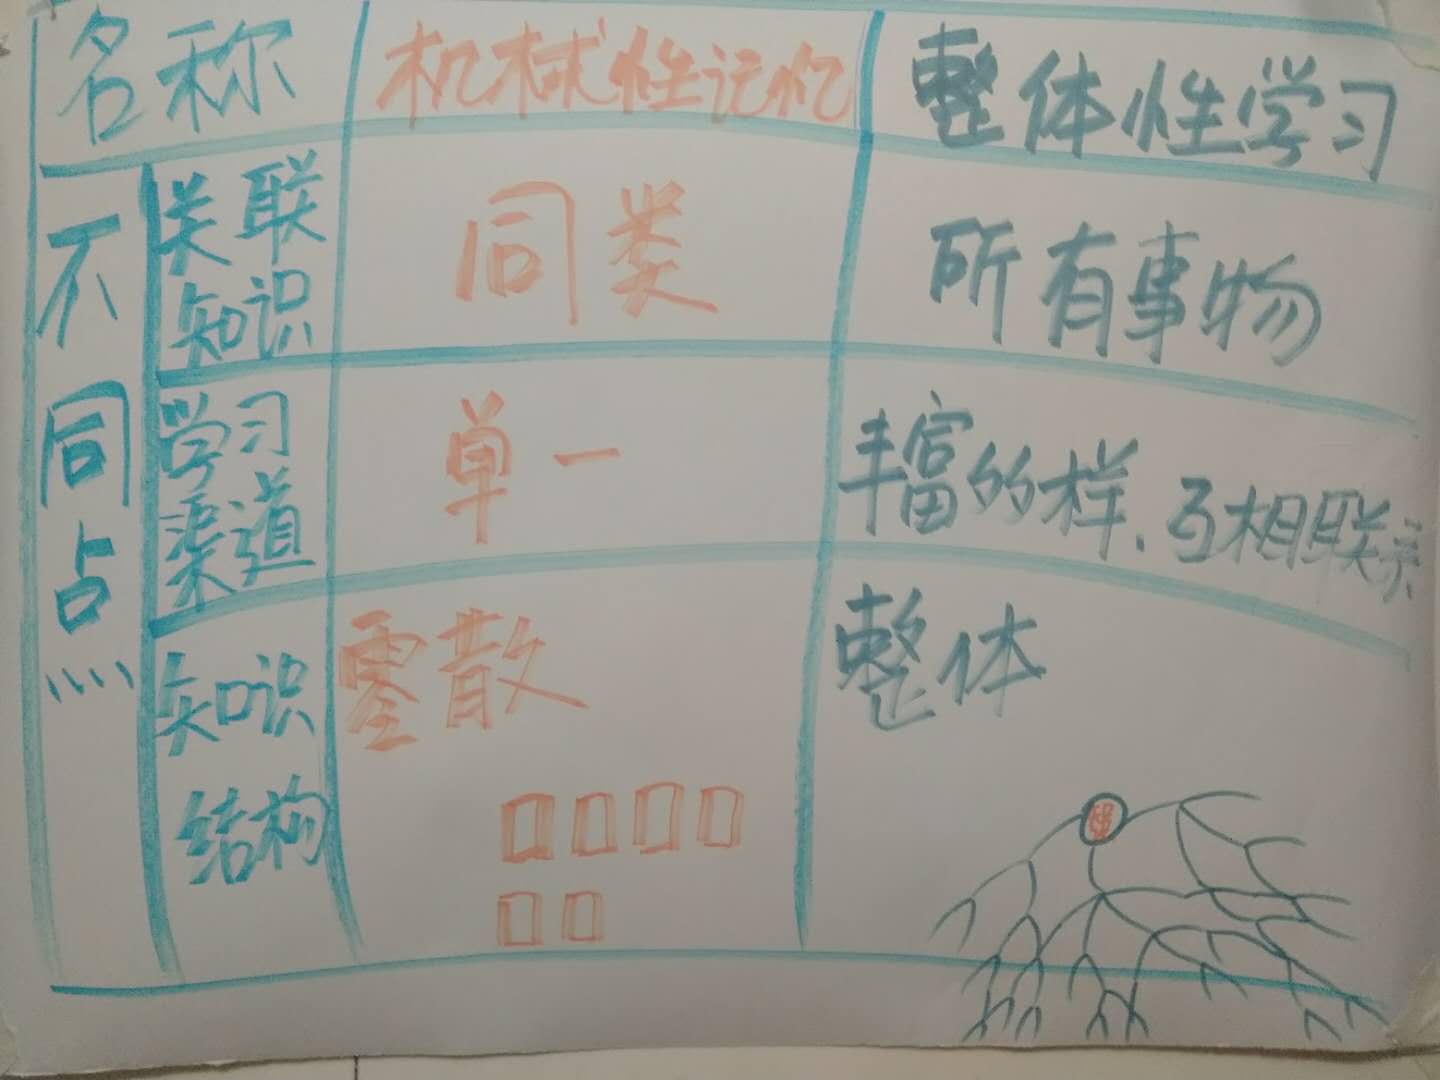 名称 机械性记忆 整体性学习
不同点
关联知识 同类 所有事物
学习渠道 单一 丰富的样、互相联系
知识结构 零散 整体